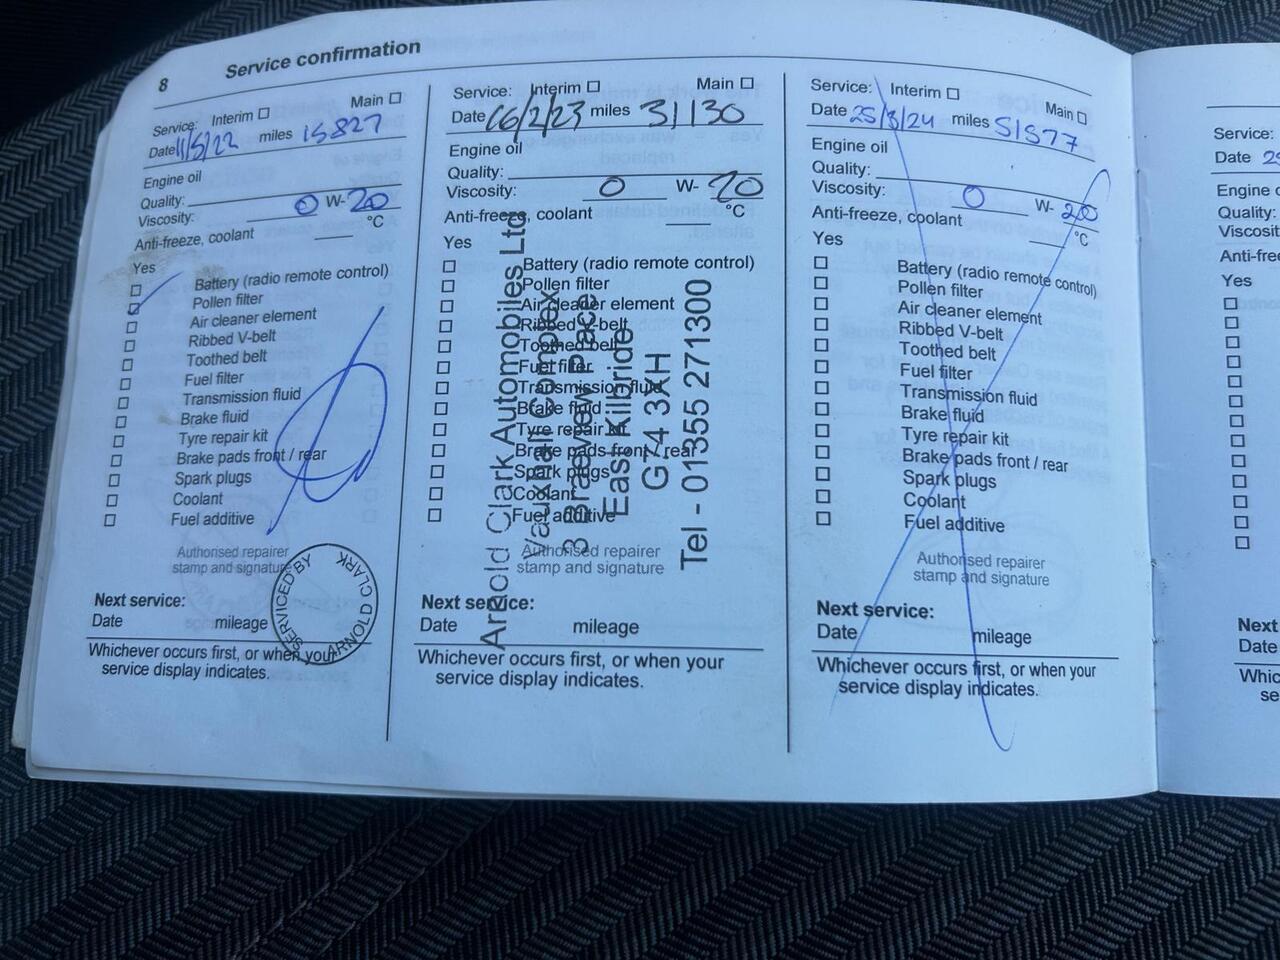 8 Service confirmation
Service: Interim ☐ Main ☐
Date 11/5/22 miles 15827
Engine oil
Quality:
Viscosity: 0 W- 20
Anti-freeze, coolant °C
Yes
☐ Battery (radio remote control)
☑ Pollen filter
☐ Air cleaner element
☐ Ribbed V-belt
☐ Toothed belt
☐ Fuel filter
☐ Transmission fluid
☐ Brake fluid
☐ Tyre repair kit
☐ Brake pads front / rear
☐ Spark plugs
☐ Coolant
☐ Fuel additive
Authorised repairer
stamp and signature
SERVICED BY
ARNOLD CLARK
Next service:
Date mileage
Whichever occurs first, or when your
service display indicates.
Service: Interim ☐ Main ☐
Date 16/2/23 miles 31130
Engine oil
Quality:
Viscosity: 0 W- 20
Anti-freeze, coolant °C
Yes
☐ Battery (radio remote control)
☐ Pollen filter
☐ Air cleaner element
☐ Ribbed V-belt
☐ Toothed belt
☐ Fuel filter
☐ Transmission fluid
☐ Brake fluid
☐ Tyre repair kit
☐ Brake pads front / rear
☐ Spark plugs
☐ Coolant
☐ Fuel additive
Authorised repairer
stamp and signature
Arnold Clark Automobiles Ltd
Vauxhall Complex
3 Braeview Place
East Kilbride
G74 3XH
Tel - 01355 271300
Next service:
Date mileage
Whichever occurs first, or when your
service display indicates.
Service: Interim ☐ Main ☐
Date 25/3/24 miles 51577
Engine oil
Quality:
Viscosity: 0 W- 20
Anti-freeze, coolant °C
Yes
☐ Battery (radio remote control)
☐ Pollen filter
☐ Air cleaner element
☐ Ribbed V-belt
☐ Toothed belt
☐ Fuel filter
☐ Transmission fluid
☐ Brake fluid
☐ Tyre repair kit
☐ Brake pads front / rear
☐ Spark plugs
☐ Coolant
☐ Fuel additive
Authorised repairer
stamp and signature
Next service:
Date mileage
Whichever occurs first, or when your
service display indicates.
Service:
Date
Engine
Quality:
Anti-
Yes
Next
Date